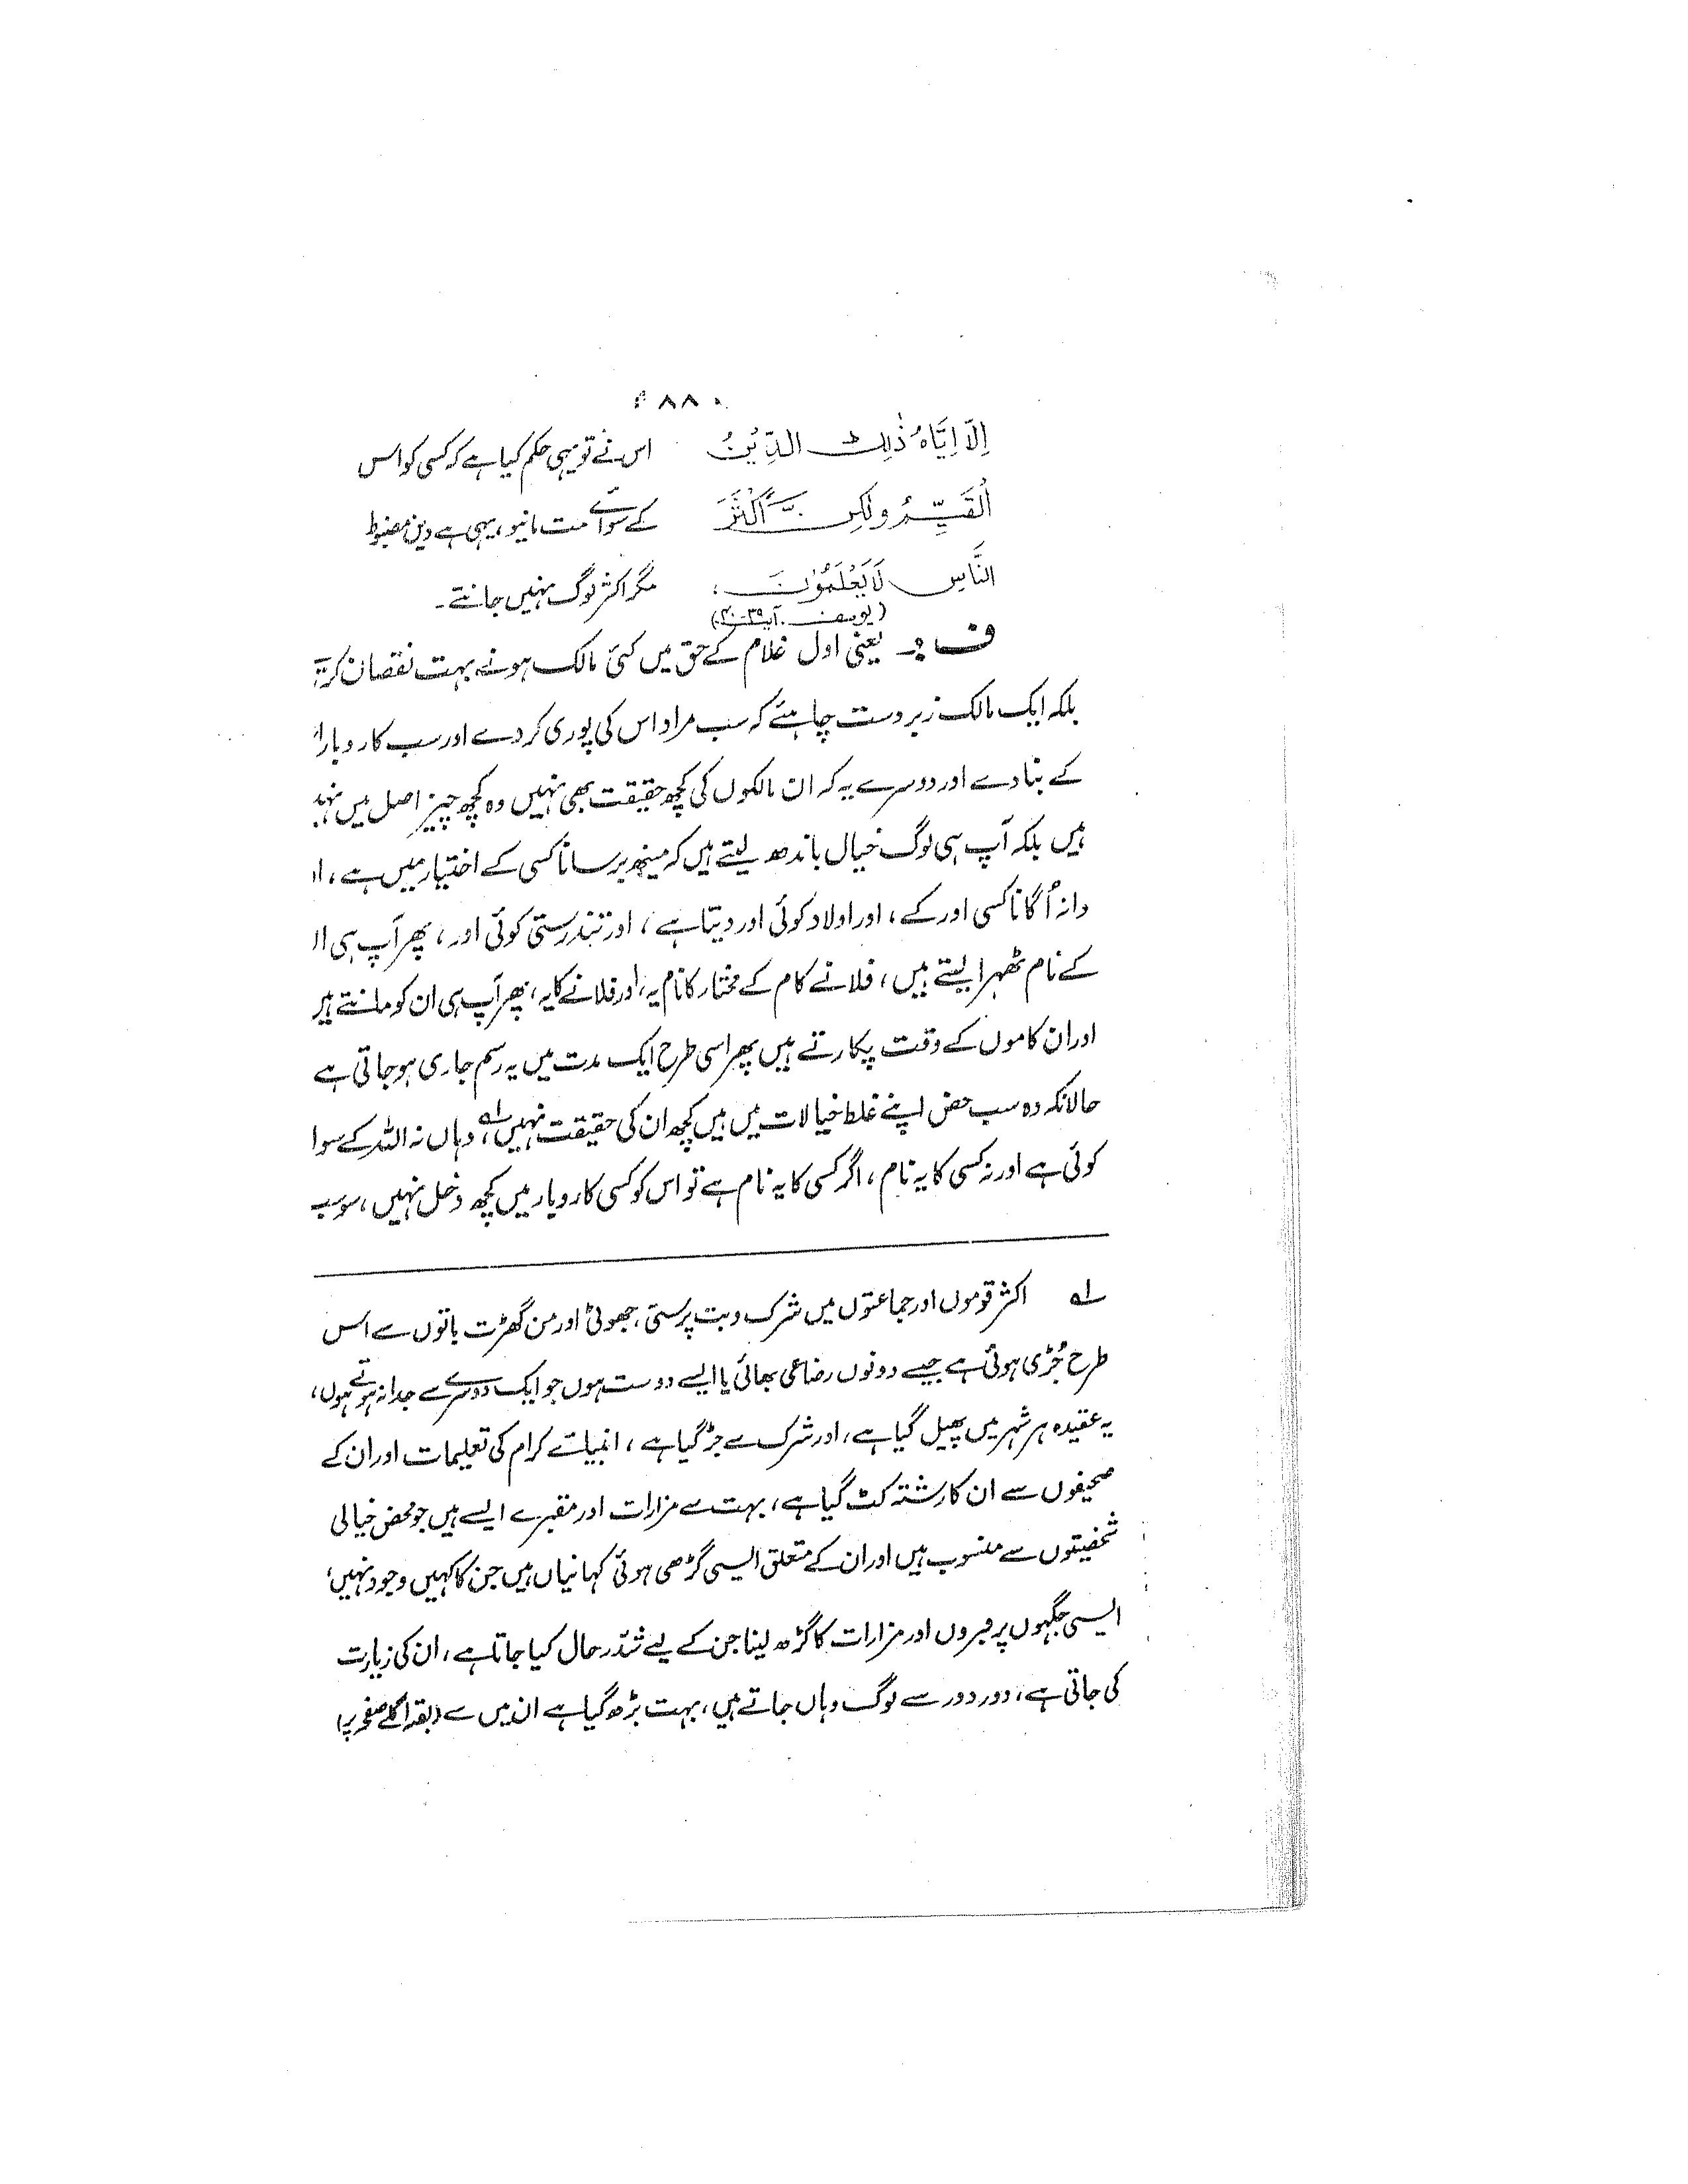 ۸۸
اِلَّا اِيَّاهُ ذٰلِكَ الدِّيْنُ اس نے تو یہی حکم کیا ہے کہ کسی کو اس
الْقَيِّمُ وَلٰكِنَّ اَكْثَرَ کے سوائے مت مانیو، یہی ہے دین مضبوط
النَّاسِ لَا يَعْلَمُوْنَ، مگر اکثر لوگ نہیں جانتے۔
(یوسف۔ آیت ۳۹-۴۰)
ف :۔ یعنی اول غلام کے حق میں کئی مالک ہونے بہت نقصان کرتے
بلکہ ایک مالک زبردست چاہئے کہ سب مراد اس کی پوری کردے اور سب کاروبار ا
کے بنادے اور دوسرے یہ کہ ان مالکوں کی کچھ حقیقت بھی نہیں وہ کچھ چیز اصل میں نہیں
ہیں بلکہ آپ ہی لوگ خیال باندھ لیتے ہیں کہ مینھ برسانا کسی کے اختیار میں ہے، ا
دانہ اُگانا کسی اور کے، اور اولاد کوئی اور دیتا ہے، اور تندرستی کوئی اور، پھر آپ ہی ا
کے نام ٹھہرا لیتے ہیں، فلانے کام کے مختار کا نام یہ، اور فلانے کا یہ، پھر آپ ہی ان کو مانتے ہیں
اور ان کاموں کے وقت پکارتے ہیں پھر اسی طرح ایک مدت میں یہ رسم جاری ہوجاتی ہے
حالانکہ وہ سب محض اپنے غلط خیالات میں ہیں کچھ ان کی حقیقت نہیں ؎۱، وہاں نہ اللہ کے سوا
کوئی ہے اور نہ کسی کا یہ نام، اگر کسی کا یہ نام ہے تو اس کو کسی کاروبار میں کچھ دخل نہیں، سو سب
؎۱ اکثر قوموں اور جماعتوں میں شرک و بت پرستی، جھوٹی اور من گھڑت باتوں سے اس
طرح جُڑی ہوئی ہے جیسے دونوں رضاعی بھائی یا ایسے دوست ہوں جو ایک دوسرے سے جدا نہ ہوتے ہوں،
یہ عقیدہ ہر شہر میں پھیل گیا ہے، اور شرک سے جڑ گیا ہے، انبیائے کرام کی تعلیمات اور ان کے
صحیفوں سے ان کا رشتہ کٹ گیا ہے، بہت سے مزارات اور مقبرے ایسے ہیں جو محض خیالی
شخصیتوں سے منسوب ہیں اور ان کے متعلق ایسی گڑھی ہوئی کہانیاں ہیں جن کا کہیں وجود نہیں،
ایسی جگہوں پر قبروں اور مزارات کا گڑھ لینا جن کے لیے شدّ رحال کیا جاتا ہے، ان کی زیارت
کی جاتی ہے، دور دور سے لوگ وہاں جاتے ہیں، بہت بڑھ گیا ہے ان میں سے (بقیہ اگلے صفحہ پر)